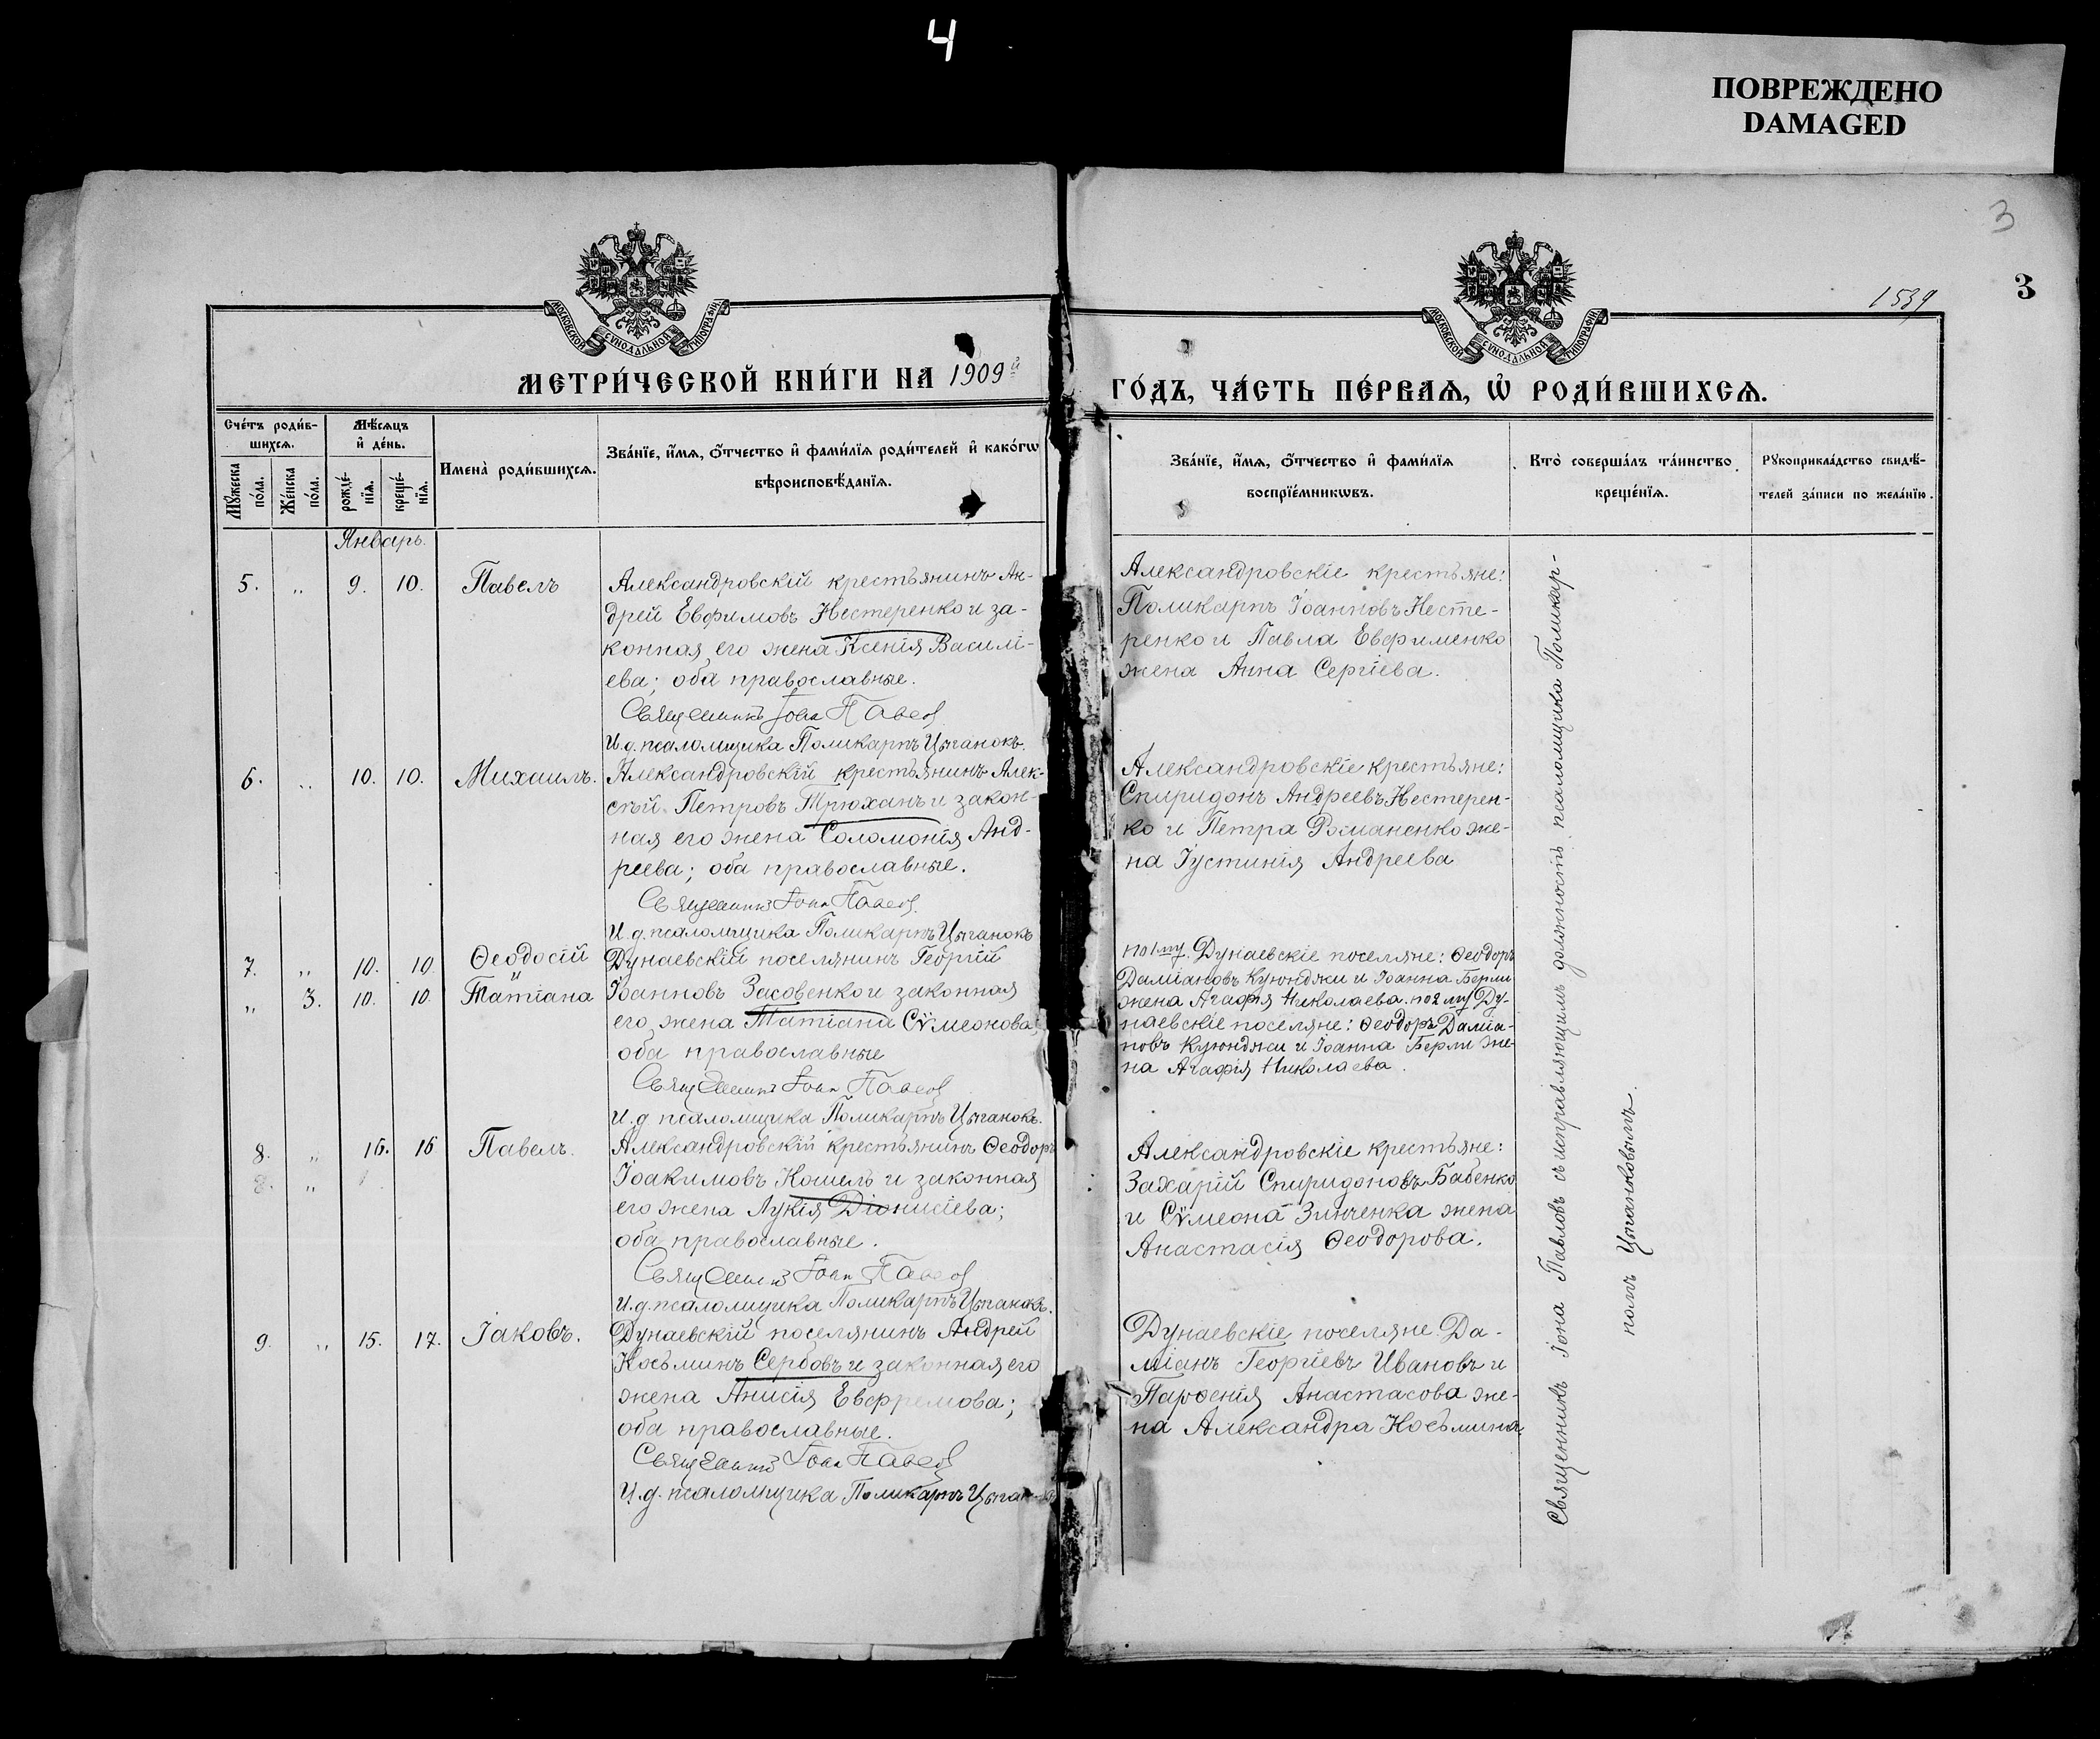 4
ПОВРЕЖДЕНО
DAMAGED
3
3
1539
МОСКОВСКОЙ СѴНОДАЛЬНОЙ ТИПОГРАФІИ
МОСКОВСКОЙ СѴНОДАЛЬНОЙ ТИПОГРАФІИ
МЕТРИ́ЧЕСКОЙ КНИ́ГИ НА 1909й
ГО́ДЪ, ЧА́СТЬ ПЕ́РВАѦ, Ѡ҆ РОДИ́ВШИХСѦ.
Сче́тъ роди́в-
шихсѧ.
Мꙋ́жеска
по́ла.
Же́нска
по́ла.
Мѣ́сѧцъ
и҆ де́нь.
рожде́-
нїѧ.
креще́-
нїѧ.
Имена̀ роди́вшихсѧ.
Зва́нїе, и҆́мѧ, ѻ҆́тчество и҆ фами́лїѧ роди́телей и҆ како́гѡ
вѣроисповѣ́данїѧ.
Зва́нїе, и҆́мѧ, ѻ҆́тчество и҆ фами́лїѧ
воспрїе́мникѡвъ.
Кто̀ соверша́лъ та́инство
креще́нїѧ.
Рꙋкоприкла́дство свидѣ́-
телей за́писи по жела́нїю.
Январь.
5. „ 9. 10. Павелъ
Александровскій крестьянинъ Ан-
дрей Евфимовъ Нестеренко и за-
конная его жена Ксенія Василі-
ева; оба православные.
Священникъ Іона Павлов
И.д. псаломщика Поликарпъ Цыганокъ.
Александровскіе крестьяне:
Поликарпъ Іоанновъ Несте-
ренко и Павла Евфименко
жена Анна Сергіева.
6. „ 10. 10. Михаилъ.
Александровскій крестьянинъ Алек-
сѣй Петровъ Трюханъ и закон-
ная его жена Соломонія Анд-
реева; оба православные.
Священникъ Іона Павлов
И.д. псаломщика Поликарпъ Цыганокъ
Александровскіе крестьяне:
Спиридонъ Андреевъ Нестерен-
ко и Петра Романенко же-
на Іустинія Андреева
7. „ 10. 10 Ѳеодосій
и
„ 3. 10. 10. Татіана
Дунаевскій поселянинъ Георгій
Іоанновъ Засовенко и законная
его жена Татіана Сѵмеонова;
оба православные
Священникъ Іона Павлов
И.д псаломщика Поликарпъ Цыганокъ.
по 1 му. Дунаевскіе поселяне: Ѳеодоръ
Даміановъ Куюнджи и Іоанна Берли
жена Агафія Николаева. по 2 му Ду-
наевскіе поселяне: Ѳеодоръ Даміа-
новъ Куюнджи и Іоанна Берли же-
на Агафія Николаева.
8. „ 16. 16 Павелъ.
8. „
Александровскій крестьянинъ Ѳеодоръ
Іоакимовъ Кошель и законная
его жена Лукія Діонисіева;
оба православные.
Священникъ Іона Павлов
И.д. псаломщика Поликарпъ Цыганокъ.
Александровскіе крестьяне:
Захарій Спиридоновъ Бабенко
и Сѵмеона Зинченка жена
Анастасія Ѳеодорова.
9. „ 15. 17. Іаковъ.
Дунаевскій поселянинъ Андрей
Косьминъ Сербовъ и законная его
жена Анисія Евфремова;
оба православные.
Священникъ Іона Павлов
И.д. псаломщика Поликарпъ Цыганокъ
Дунаевскіе поселяне. Да-
міанъ Георгіевъ Ивановъ и
Парѳенія Анастасова же-
на Александра Косьмина.
Священникъ Іона Павловъ съ исправляющимъ должность псаломщика Поликар-
помъ Цыганковымъ.